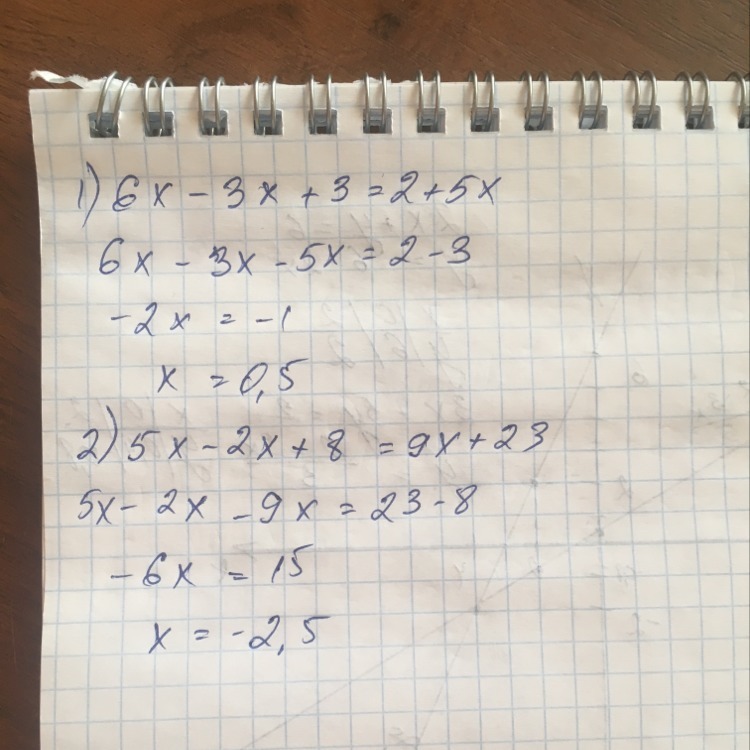 1) 6x - 3x + 3 = 2 + 5x
6x - 3x - 5x = 2 - 3
-2x = -1
x = 0,5
2) 5x - 2x + 8 = 9x + 23
5x - 2x - 9x = 23 - 8
-6x = 15
x = -2,5